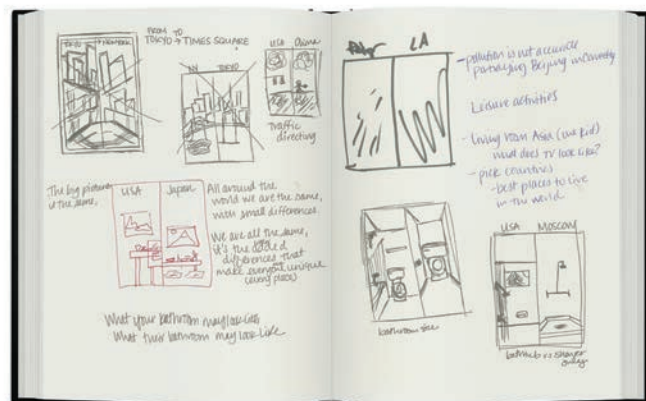 TOKYO → NEW YORK
FROM TO
TOKYO → TIMES SQUARE
NY TOKYO
USA China
Traffic
directing
The big picture
is the same,
USA Japan
All around the
world we are the same,
with small differences.
We are all the same,
it's the
differences that
make everyone unique
What your bathroom may look like
What their bathroom may look like
LA
- pollution is not accurate
portraying Beijing
Leisure activities
- Living
does TV look like?
- pick countries
- best places to live
in the world
bathroom size
USA MOSCOW
bathtub vs shower
only